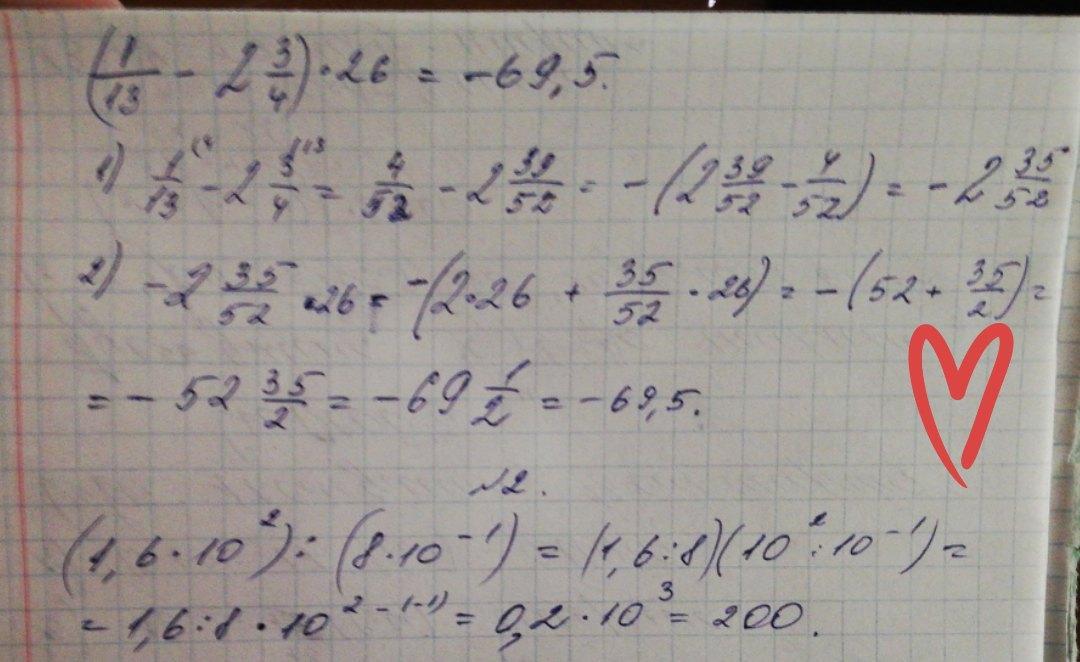 (1/13 - 2 3/4) · 26 = -69,5.
1) 1/13 (4 - 2 3/4 (13 = 4/52 - 2 39/52 = -(2 39/52 - 4/52) = -2 35/52
2) -2 35/52 · 26 = -(2·26 + 35/52 · 26) = -(52 + 35/2) =
= -52 35/2 = -69 1/2 = -69,5.
№2.
(1,6·10²) : (8·10⁻¹) = (1,6:8)(10²:10⁻¹) =
= 1,6:8 · 10²⁻⁽⁻¹⁾ = 0,2·10³ = 200.